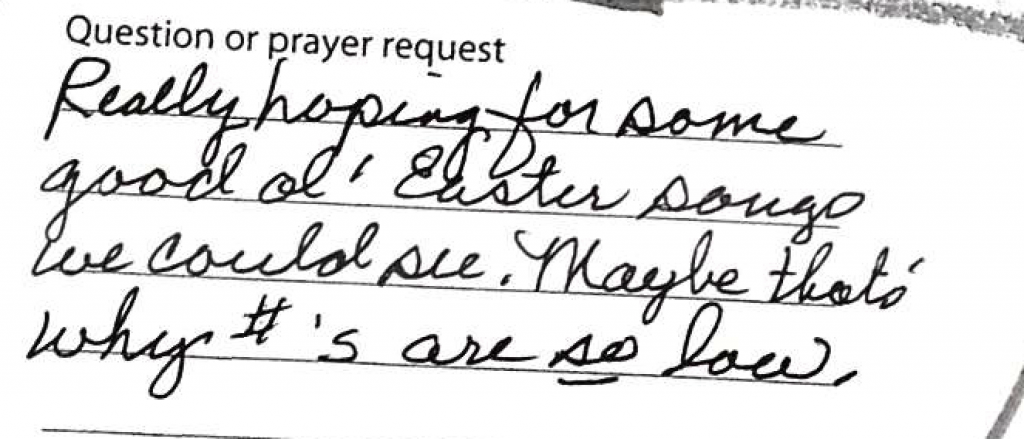 Question or prayer request
Really hoping for some
good ol' Easter songs
we could see. Maybe that's
why #'s are so low.